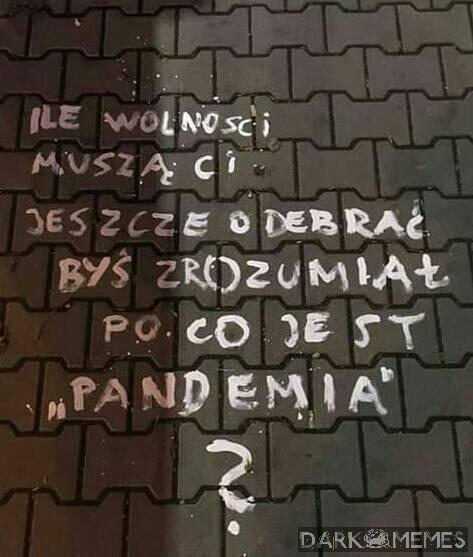 ILE WOLNOSCI
MUSZĄ CI
JESZCZE ODEBRAĆ
BYŚ ZROZUMIAŁ
PO CO JEST
„PANDEMIA"
?
DARK MEMES